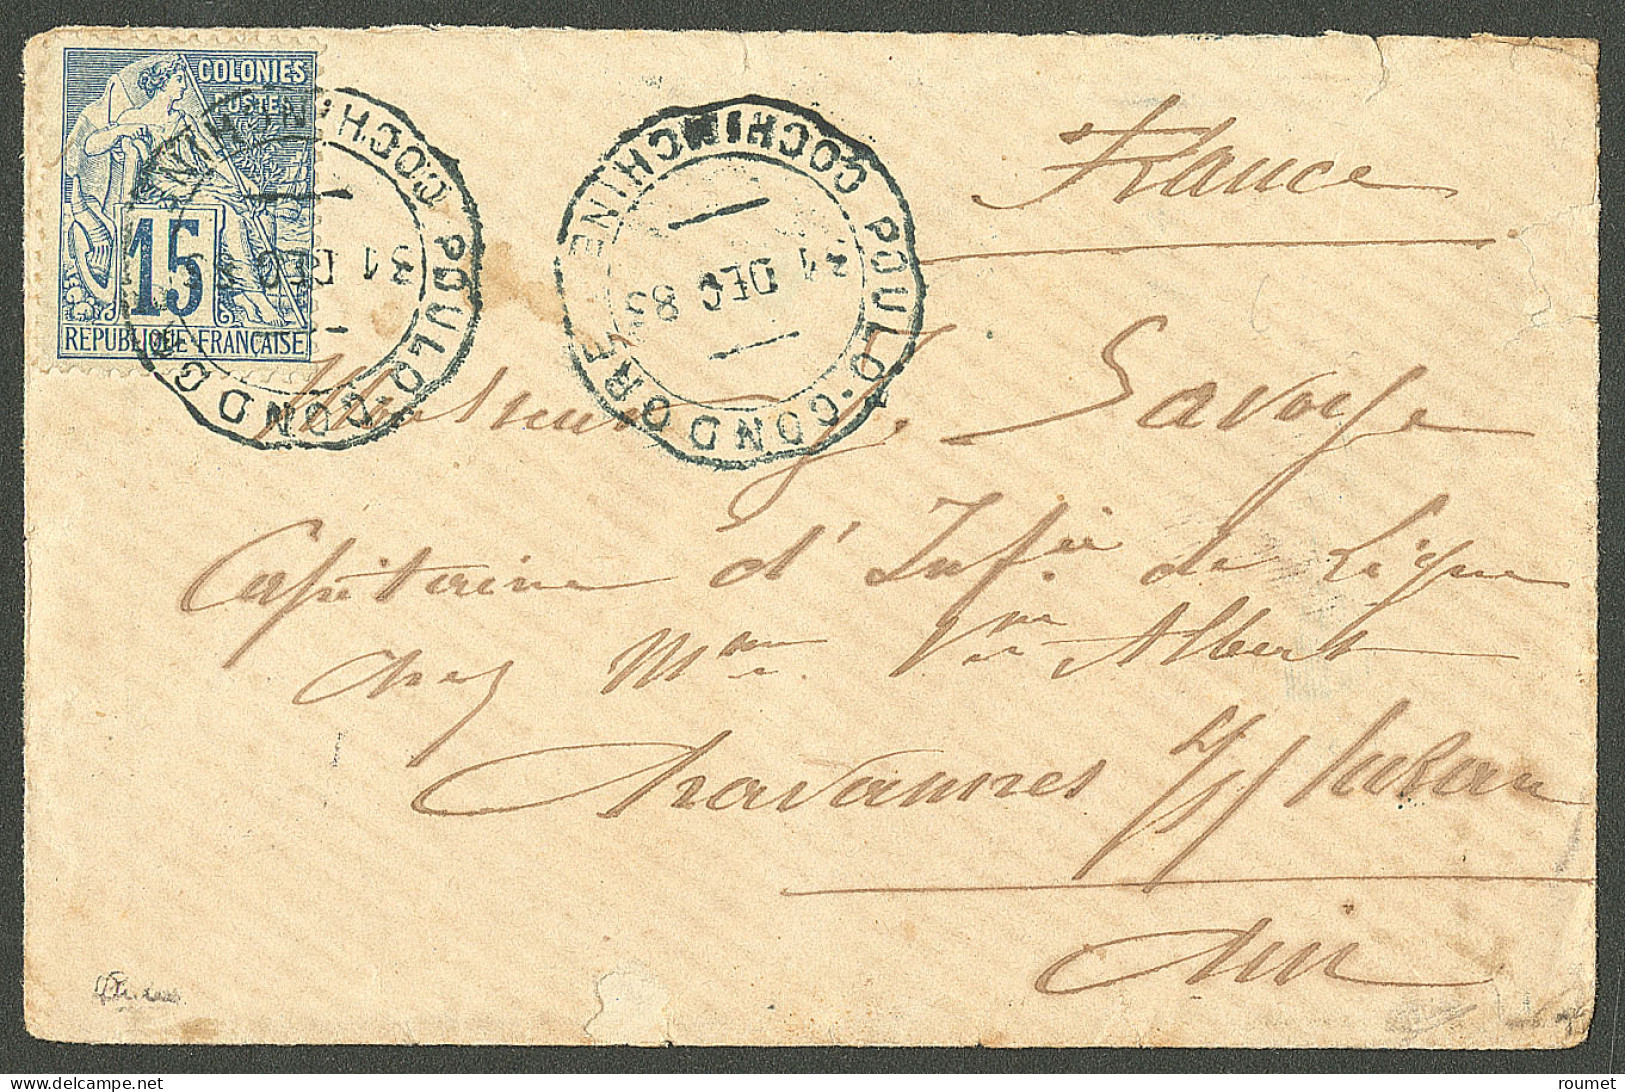 COLONIES
POSTES
15
REPUBLIQUE FRANÇAISE
POULO-CONDORE COCHINCHINE
31 DEC
POULO-CONDORE COCHINCHINE
31 DEC 85
France
Monsieur J. Savoye
Capitaine d'Infie de Ligne
chez Mme Vve Albert
Chavannes s/ Suran
Ain
roumet